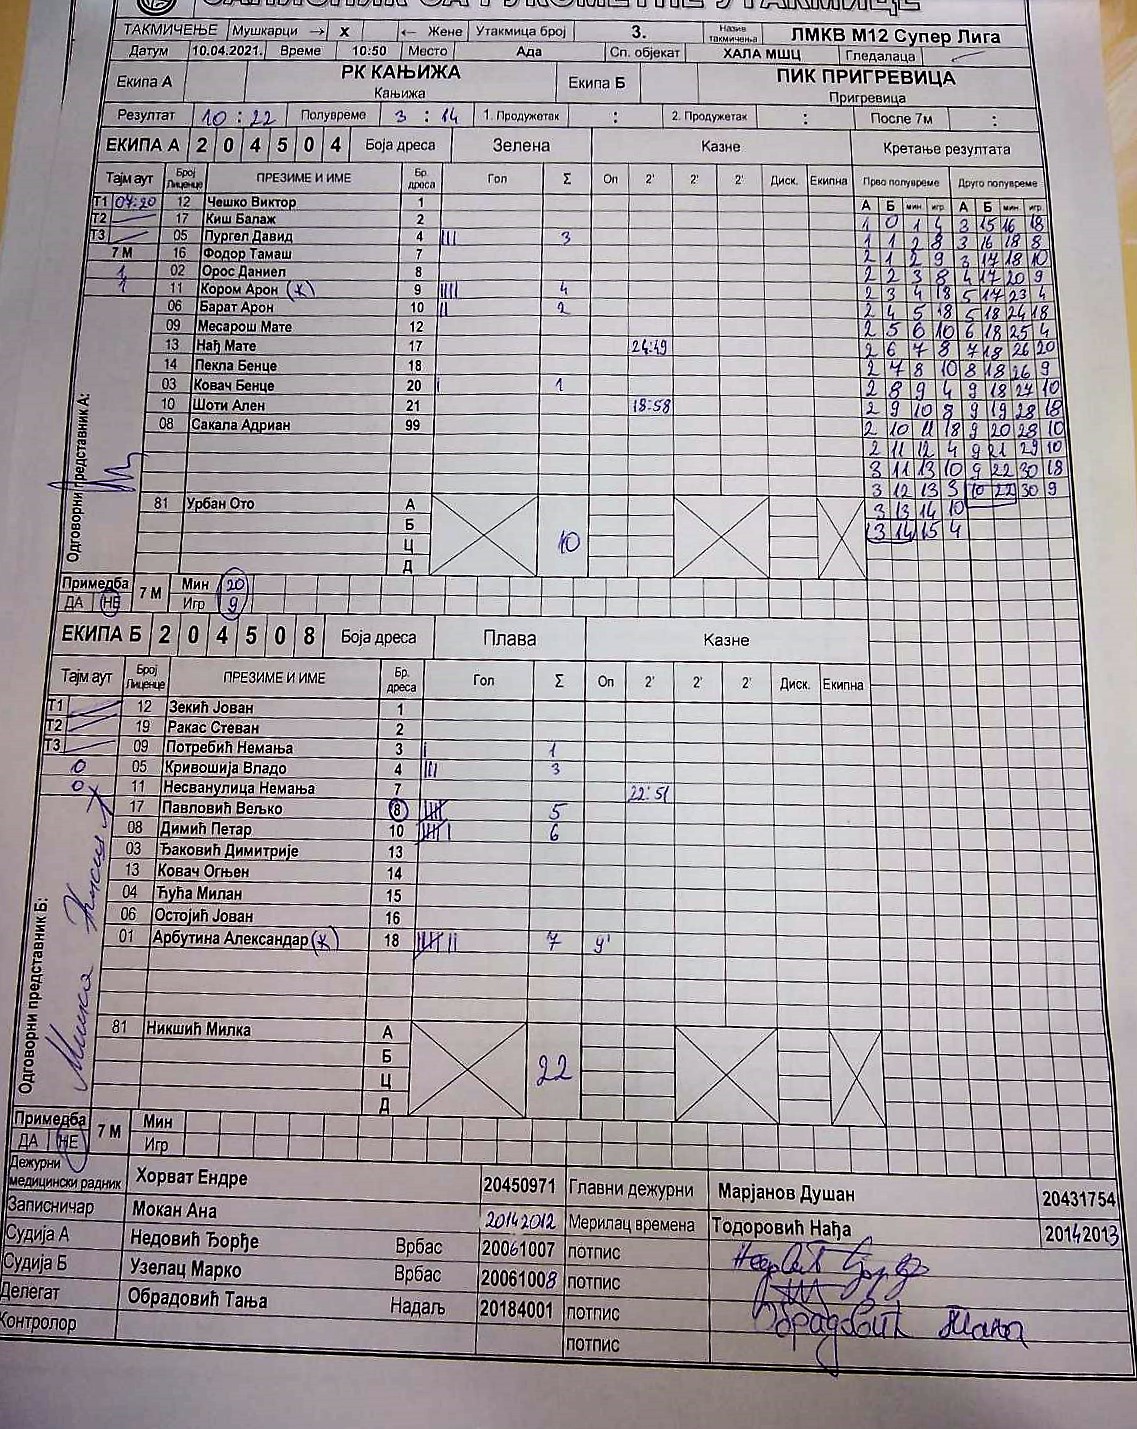 ЗАПИСНИК СА РУКОМЕТНЕ УТАКМИЦЕ
ТАКМИЧЕЊЕ Мушкарци → x ← Жене Утакмица број 3. Назив такмичења ЛМКВ М12 Супер Лига
Датум 10.04.2021. Време 10:50 Место Ада Сп. објекат ХАЛА МШЦ Гледалаца
Екипа А РК КАЊИЖА Екипа Б ПИК ПРИГРЕВИЦА
Кањижа Пригревица
Резултат 10 : 22 Полувреме 3 : 14 1. Продужетак : 2. Продужетак : После 7м :
ЕКИПА А 2 0 4 5 0 4 Боја дреса Зелена Казне Кретање резултата
Тајм аут Број Лиценце ПРЕЗИМЕ И ИМЕ Бр. дреса Гол Σ Оп 2' 2' 2' Диск. Екипна Прво полувреме Друго полувреме
А Б мин. игр. А Б мин. игр.
Т1 07:20 12 Чешко Виктор 1 1 0 1 4 3 15 16 18
Т2 17 Киш Балаж 2 1 1 2 8 3 16 18 8
Т3 05 Пургел Давид 4 III 3 2 1 2 9 3 17 18 10
7 М 16 Фодор Тамаш 7 2 2 3 8 4 17 20 9
1 02 Орос Даниел 8 2 3 4 18 5 17 23 4
1 11 Кором Арон (к) 9 IIII 4 2 4 5 18 5 18 24 18
06 Барат Арон 10 II 2 2 5 6 10 6 18 25 4
09 Месарош Мате 12 2 6 7 8 7 18 26 20
13 Нађ Мате 17 24:49 2 7 8 10 8 18 26 9
14 Пекла Бенце 18 2 8 9 4 9 18 27 10
03 Ковач Бенце 20 I 1 2 9 10 8 9 19 28 18
10 Шоти Ален 21 18:58 2 10 11 18 9 20 28 10
08 Сакала Адриан 99 2 11 12 4 9 21 29 10
3 11 13 10 9 22 30 18
3 12 13 3 10 22 30 9
3 13 14 10
3 14 15 4
Одговорни представник А:
81 Урбан Ото А
Б
Ц 10
Д
Примедба 7 М Мин 20
ДА НЕ Игр 9
ЕКИПА Б 2 0 4 5 0 8 Боја дреса Плава Казне
Тајм аут Број Лиценце ПРЕЗИМЕ И ИМЕ Бр. дреса Гол Σ Оп 2' 2' 2' Диск. Екипна
Т1 12 Зекић Јован 1
Т2 19 Ракас Стеван 2
Т3 09 Потребић Немања 3 I 1
0 05 Кривошија Владо 4 III 3
0 11 Несванулица Немања 7 22:51
17 Павловић Вељко 8 IIIII 5
08 Димић Петар 10 IIIII I 6
03 Ђаковић Димитрије 13
13 Ковач Огњен 14
04 Ћућа Милан 15
06 Остојић Јован 16
01 Арбутина Александар (к) 18 IIIII II 7 9'
Одговорни представник Б:
81 Никшић Милка А
Б
Ц 22
Д
Примедба 7 М Мин
ДА НЕ Игр
Дежурни медицински радник Хорват Ендре 20450971 Главни дежурни Марјанов Душан 20431754
Записничар Мокан Ана 20142012 Мерилац времена Тодоровић Нађа 20142013
Судија А Недовић Ђорђе Врбас 20061007 потпис
Судија Б Узелац Марко Врбас 20061008 потпис
Делегат Обрадовић Тања Надаљ 20184001 потпис Обрадовић Тања
Контролор потпис